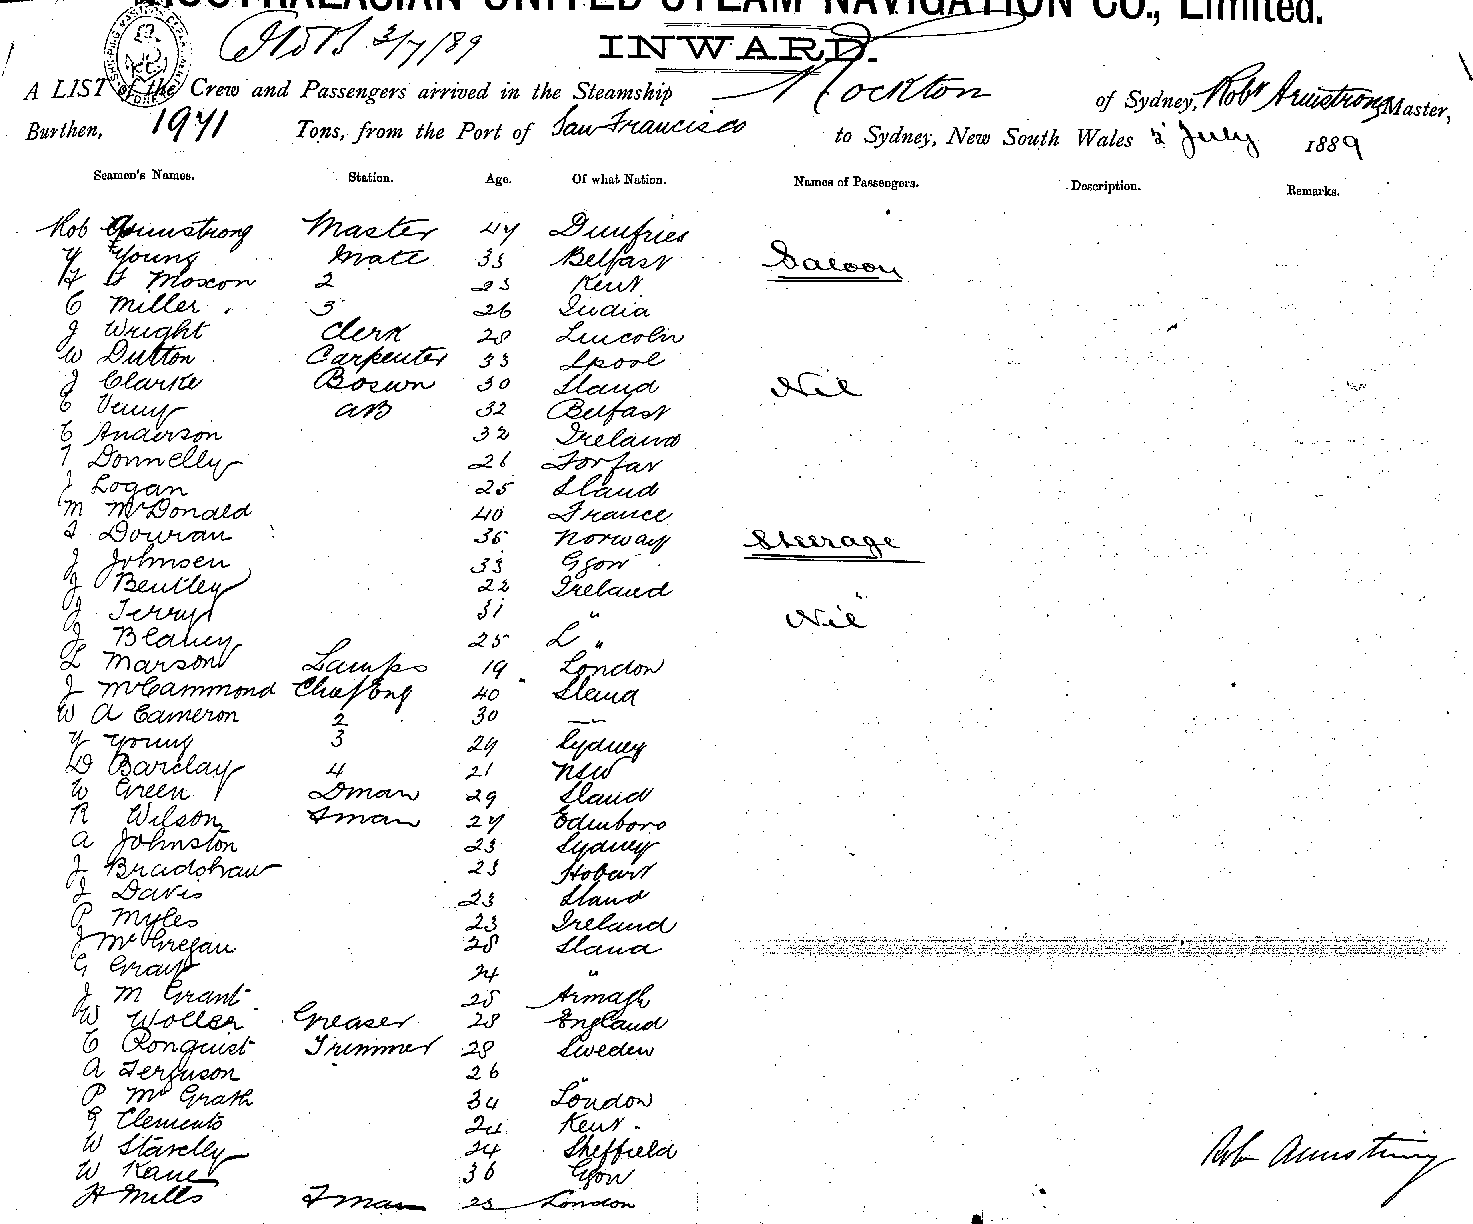 AUSTRALASIAN UNITED STEAM NAVIGATION CO., Limited.
2/7/89
INWARD.
A LIST of the Crew and Passengers arrived in the Steamship Rockton of Sydney, Robt Armstrong Master,
Burthen, 1971 Tons, from the Port of San Francisco to Sydney, New South Wales 2 July 1889
Seamen's Names. Station. Age. Of what Nation. Names of Passengers. Description. Remarks.
Rob Armstrong Master 47 Dumfries
Y Young Mate 33 Belfast
Saloon
F G Moxon 2 23 Kent
C Miller 3 26 India
J Wright Clerk 28 Lincoln
W Dutton Carpenter 33 Lpool
J Clarke Bosun 30 Sland
Nil
C Venny AB 32 Belfast
C Anderson 32 Ireland
T Donnelly 26 Forfar
J Logan 25 Sland
M McDonald 40 France
Dowran 36 Norway
Steerage
J Johnsen 33 Ggow
J Bentley 22 Ireland
J Terry 31 "
Nil
J Blaney 25 L "
L Marson Lamps 19 London
J McCammond Chief Eng 40 Sland
W A Cameron 2 30 —
Y Young 3 29 Sydney
D Barclay 4 21 NSW
W Green Dman 29 Sland
R Wilson Fman 27 Edinboro
A Johnston 23 Sydney
J Bradshaw 23 Hobart
J Davis 23 Sland
P Myles 23 Ireland
J McGregan 28 Sland
G Gray 24 "
J M Grant 28 Armagh
W Woller Greaser 28 England
C Ronquist Trimmer 28 Sweden
A Ferguson 26 "
P McGrath 34 London
G Clements 24 Kent
W Staveley 24 Sheffield
W Kane 36 Ggow
Rob Armstrong
H Mills Fman 23 London